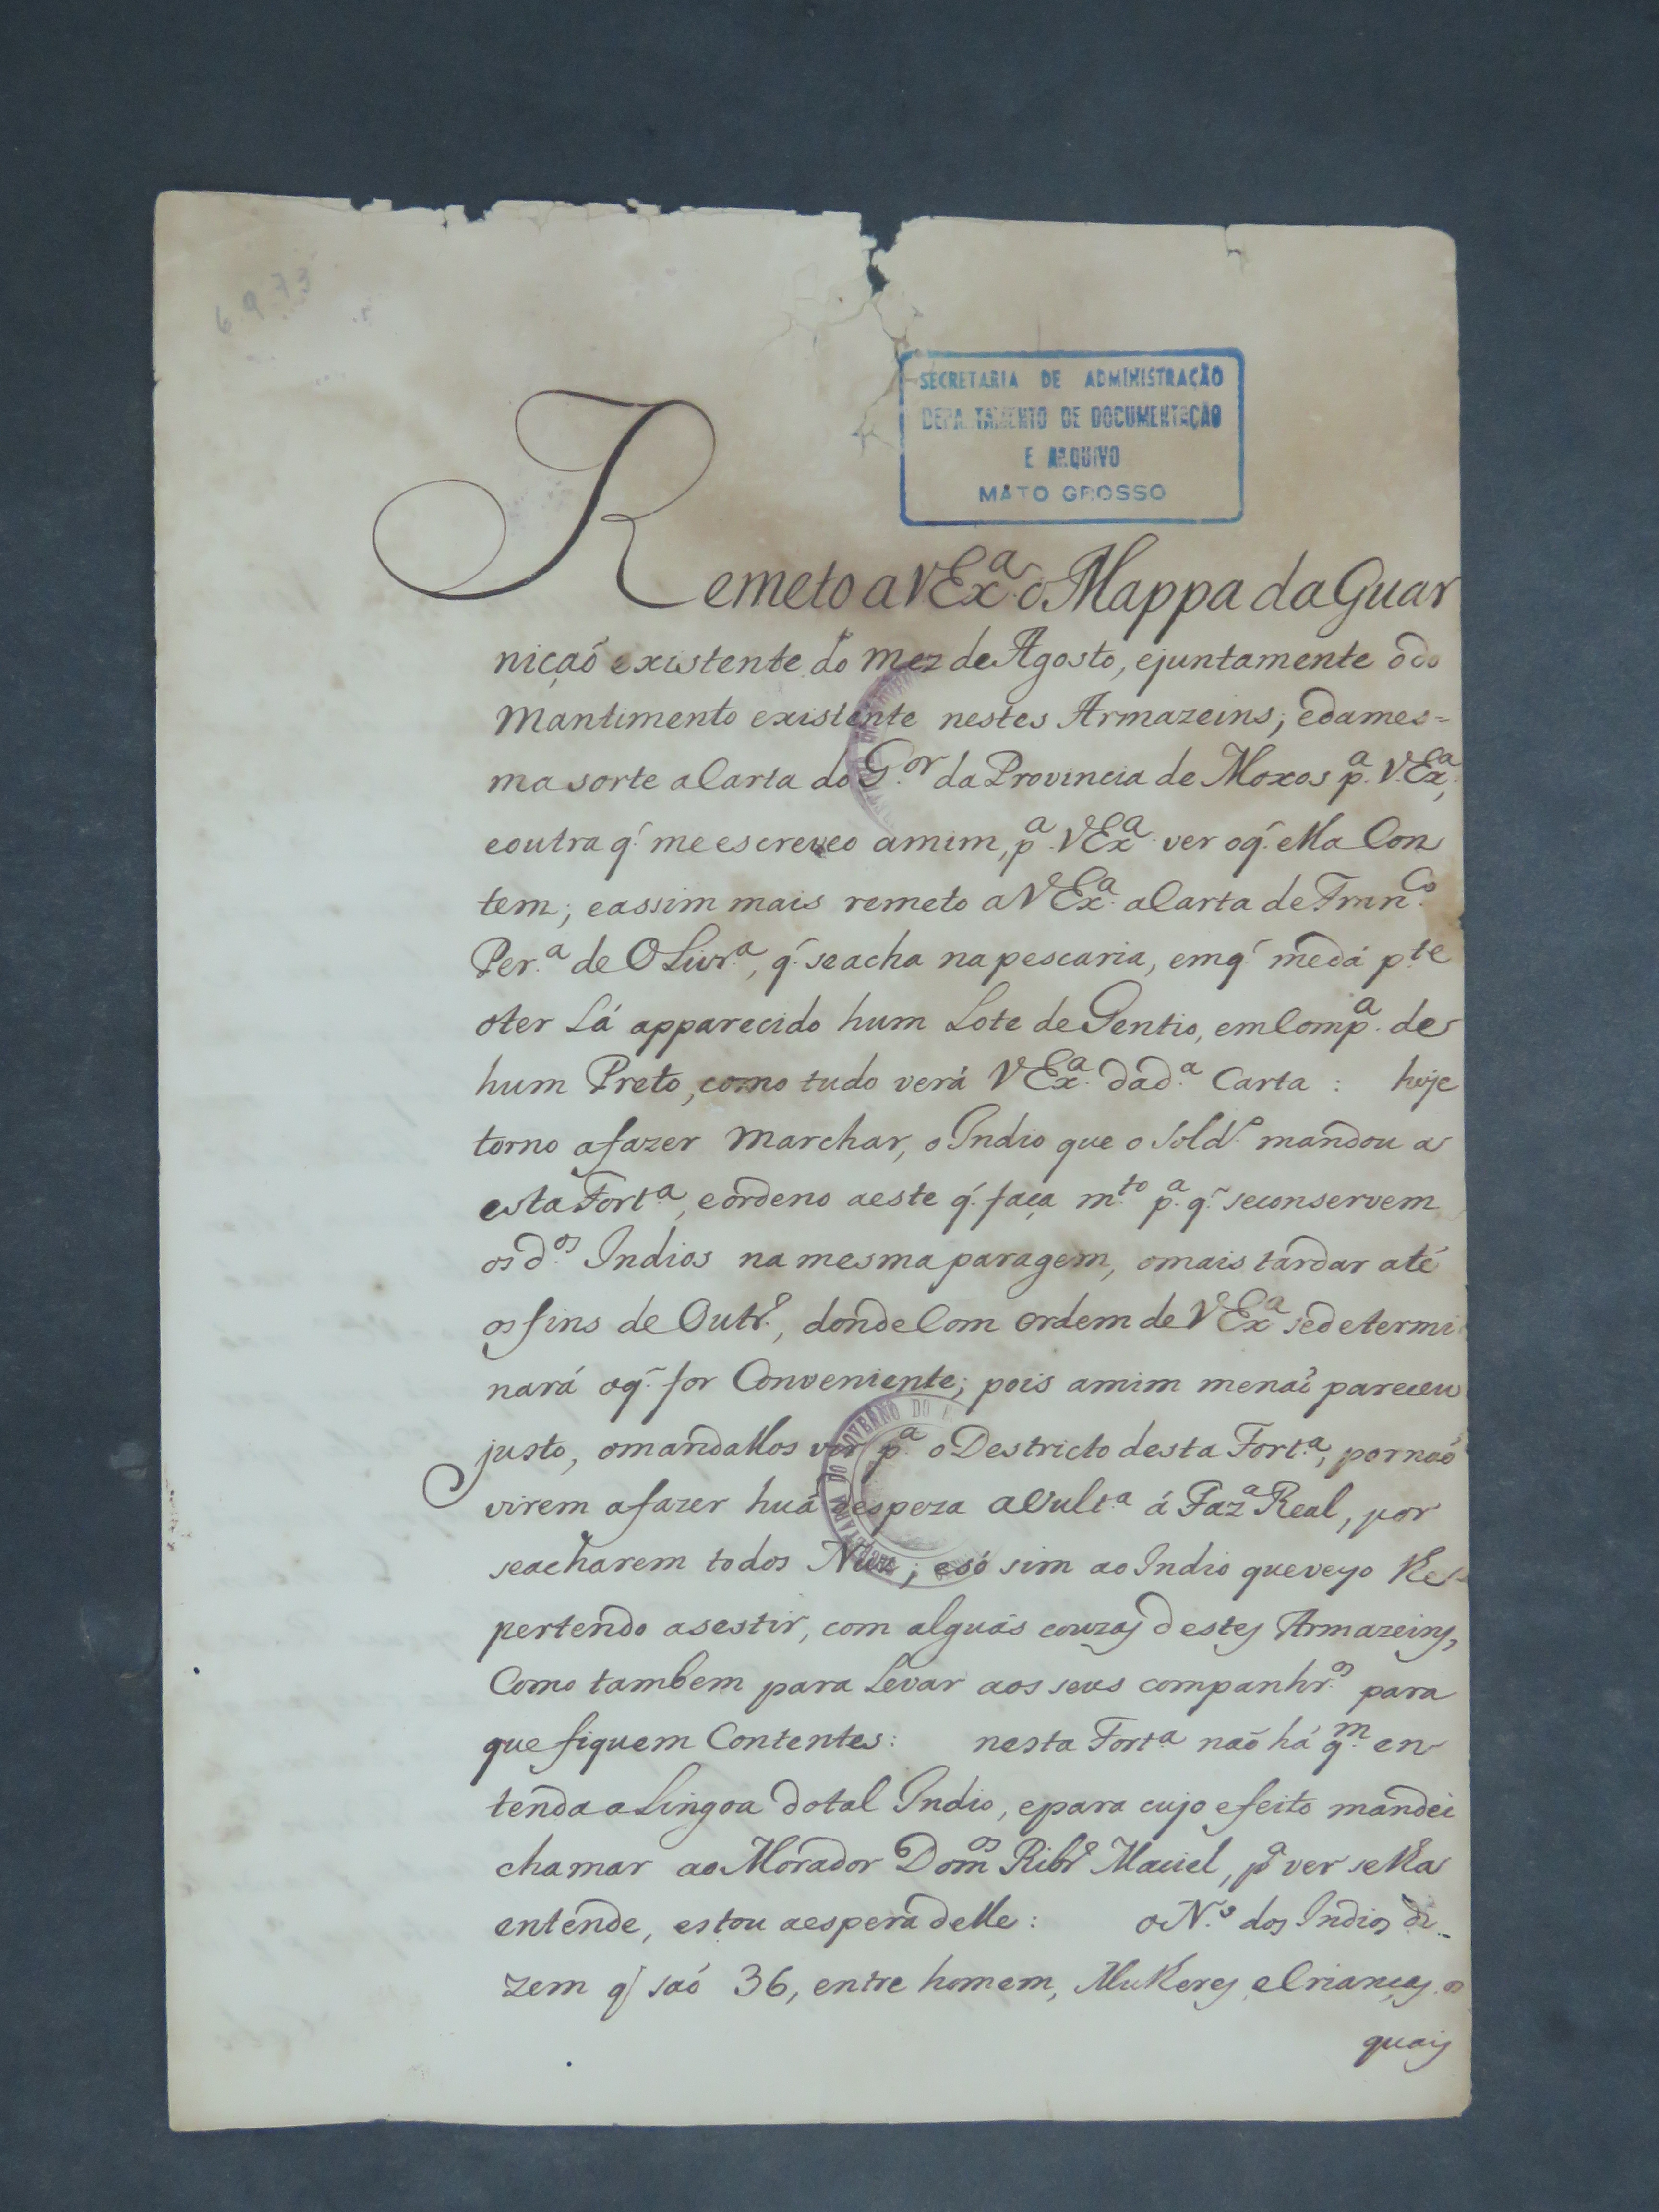 6973
SECRETARIA DE ADMINISTRAÇÃO
DEPARTAMENTO DE DOCUMENTAÇÃO
E ARQUIVO
MATO GROSSO
Remeto a VExª o Mappa da Guar
niçaõ existente do mez de Agosto, ejuntamente o do
Mantimento existente nestes Armazeins; e da mes=
ma sorte a Carta do G.or da Provincia de Moxos p.ª V.Exª,
e outra q̃ me escreveo amim, p.ª VExª ver oq̃ ella Con
tem; e assim mais remeto a VExª a Carta de Fran.co
Per.ª de Olivr.ª, q̃ seacha napescaria, emq̃ me dá p.te
o ter Lá apparecido hum Lote de Gentio, em Comp.ª de
hum Preto, como tudo verá VExª da d.ª Carta : hoje
torno afazer marchar, o Indio que o Sold.º mandou a
esta Fort.ª, e ordeno aeste q̃ faça m.to p.ª q̃ seconservem
os d.os Indios na mesma paragem, omais tardar até
os fins de Outr.º, donde Com ordem de VExª sedetermi
nará oq̃ for Conveniente; pois amim menaõ pareceu
justo, omandallos vir p.ª o Destricto desta Fort.ª, por naõ
virem afazer huã despeza avult.ª á Faz.ª Real, por
seacharem todos Nus; e só sim ao Indio que veyo Re-
pertendo asestir, com alguãs couzas destes Armazeins,
Como tambem para Levar aos seus companhr.os para
que fiquem Contentes: nesta Fort.ª naõ há q.m en
tenda a Lingoa do tal Indio, epara cujo efeito mandei
chamar ao Morador Dom.os Ribr.º Maciel, p.ª ver se lha
entende, estou aespera delle: o N.º dos Indios di-
zem q̃ saõ 36, entre homem, Mulheres, e Crianças os
quais